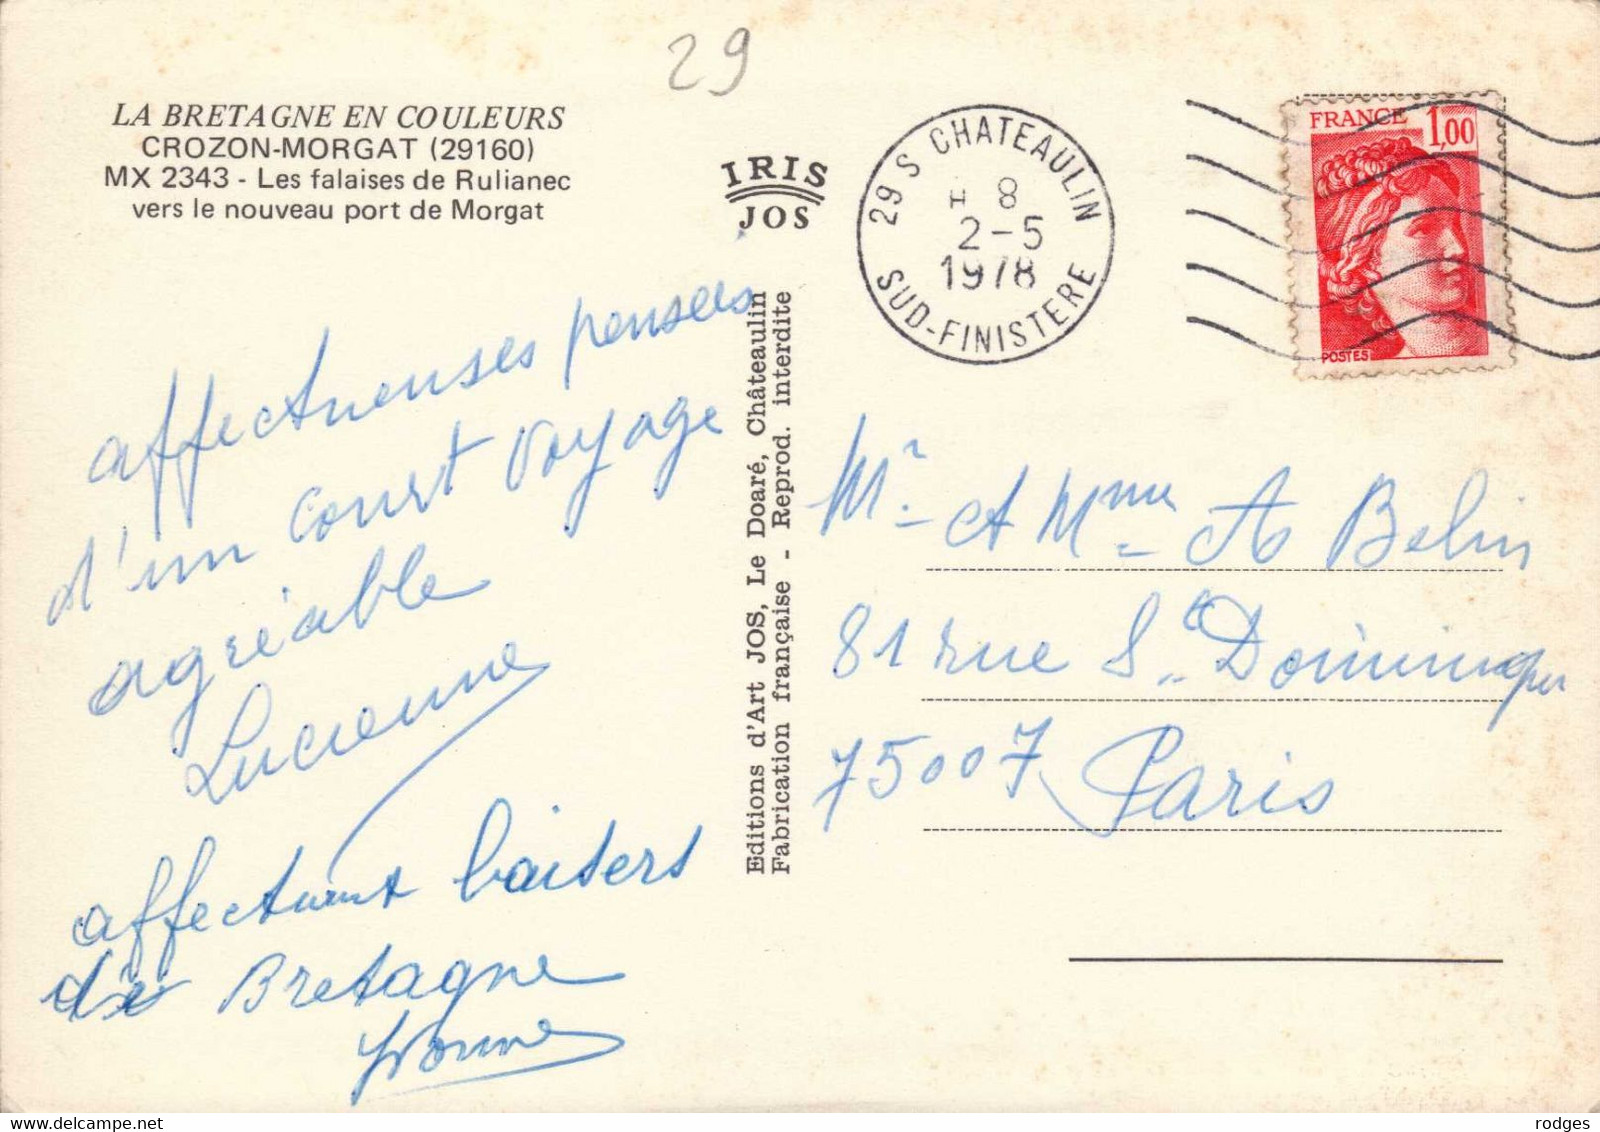 29
LA BRETAGNE EN COULEURS
CROZON-MORGAT (29160)
MX 2343 - Les falaises de Rulianec
vers le nouveau port de Morgat
IRIS
JOS
29 S CHATEAULIN
H 8
2-5
1978
SUD-FINISTERE
FRANCE 1,00
POSTES
affectueuses pensées
d'un court voyage
agréable
Lucienne
affectueux baisers
de Bretagne
Yvonne
Editions d'Art JOS, Le Doaré, Châteaulin
Fabrication française - Reprod. interdite
Mr et Mme A Belin
81 rue St Dominique
75007 Paris
rodges
www.delcampe.net